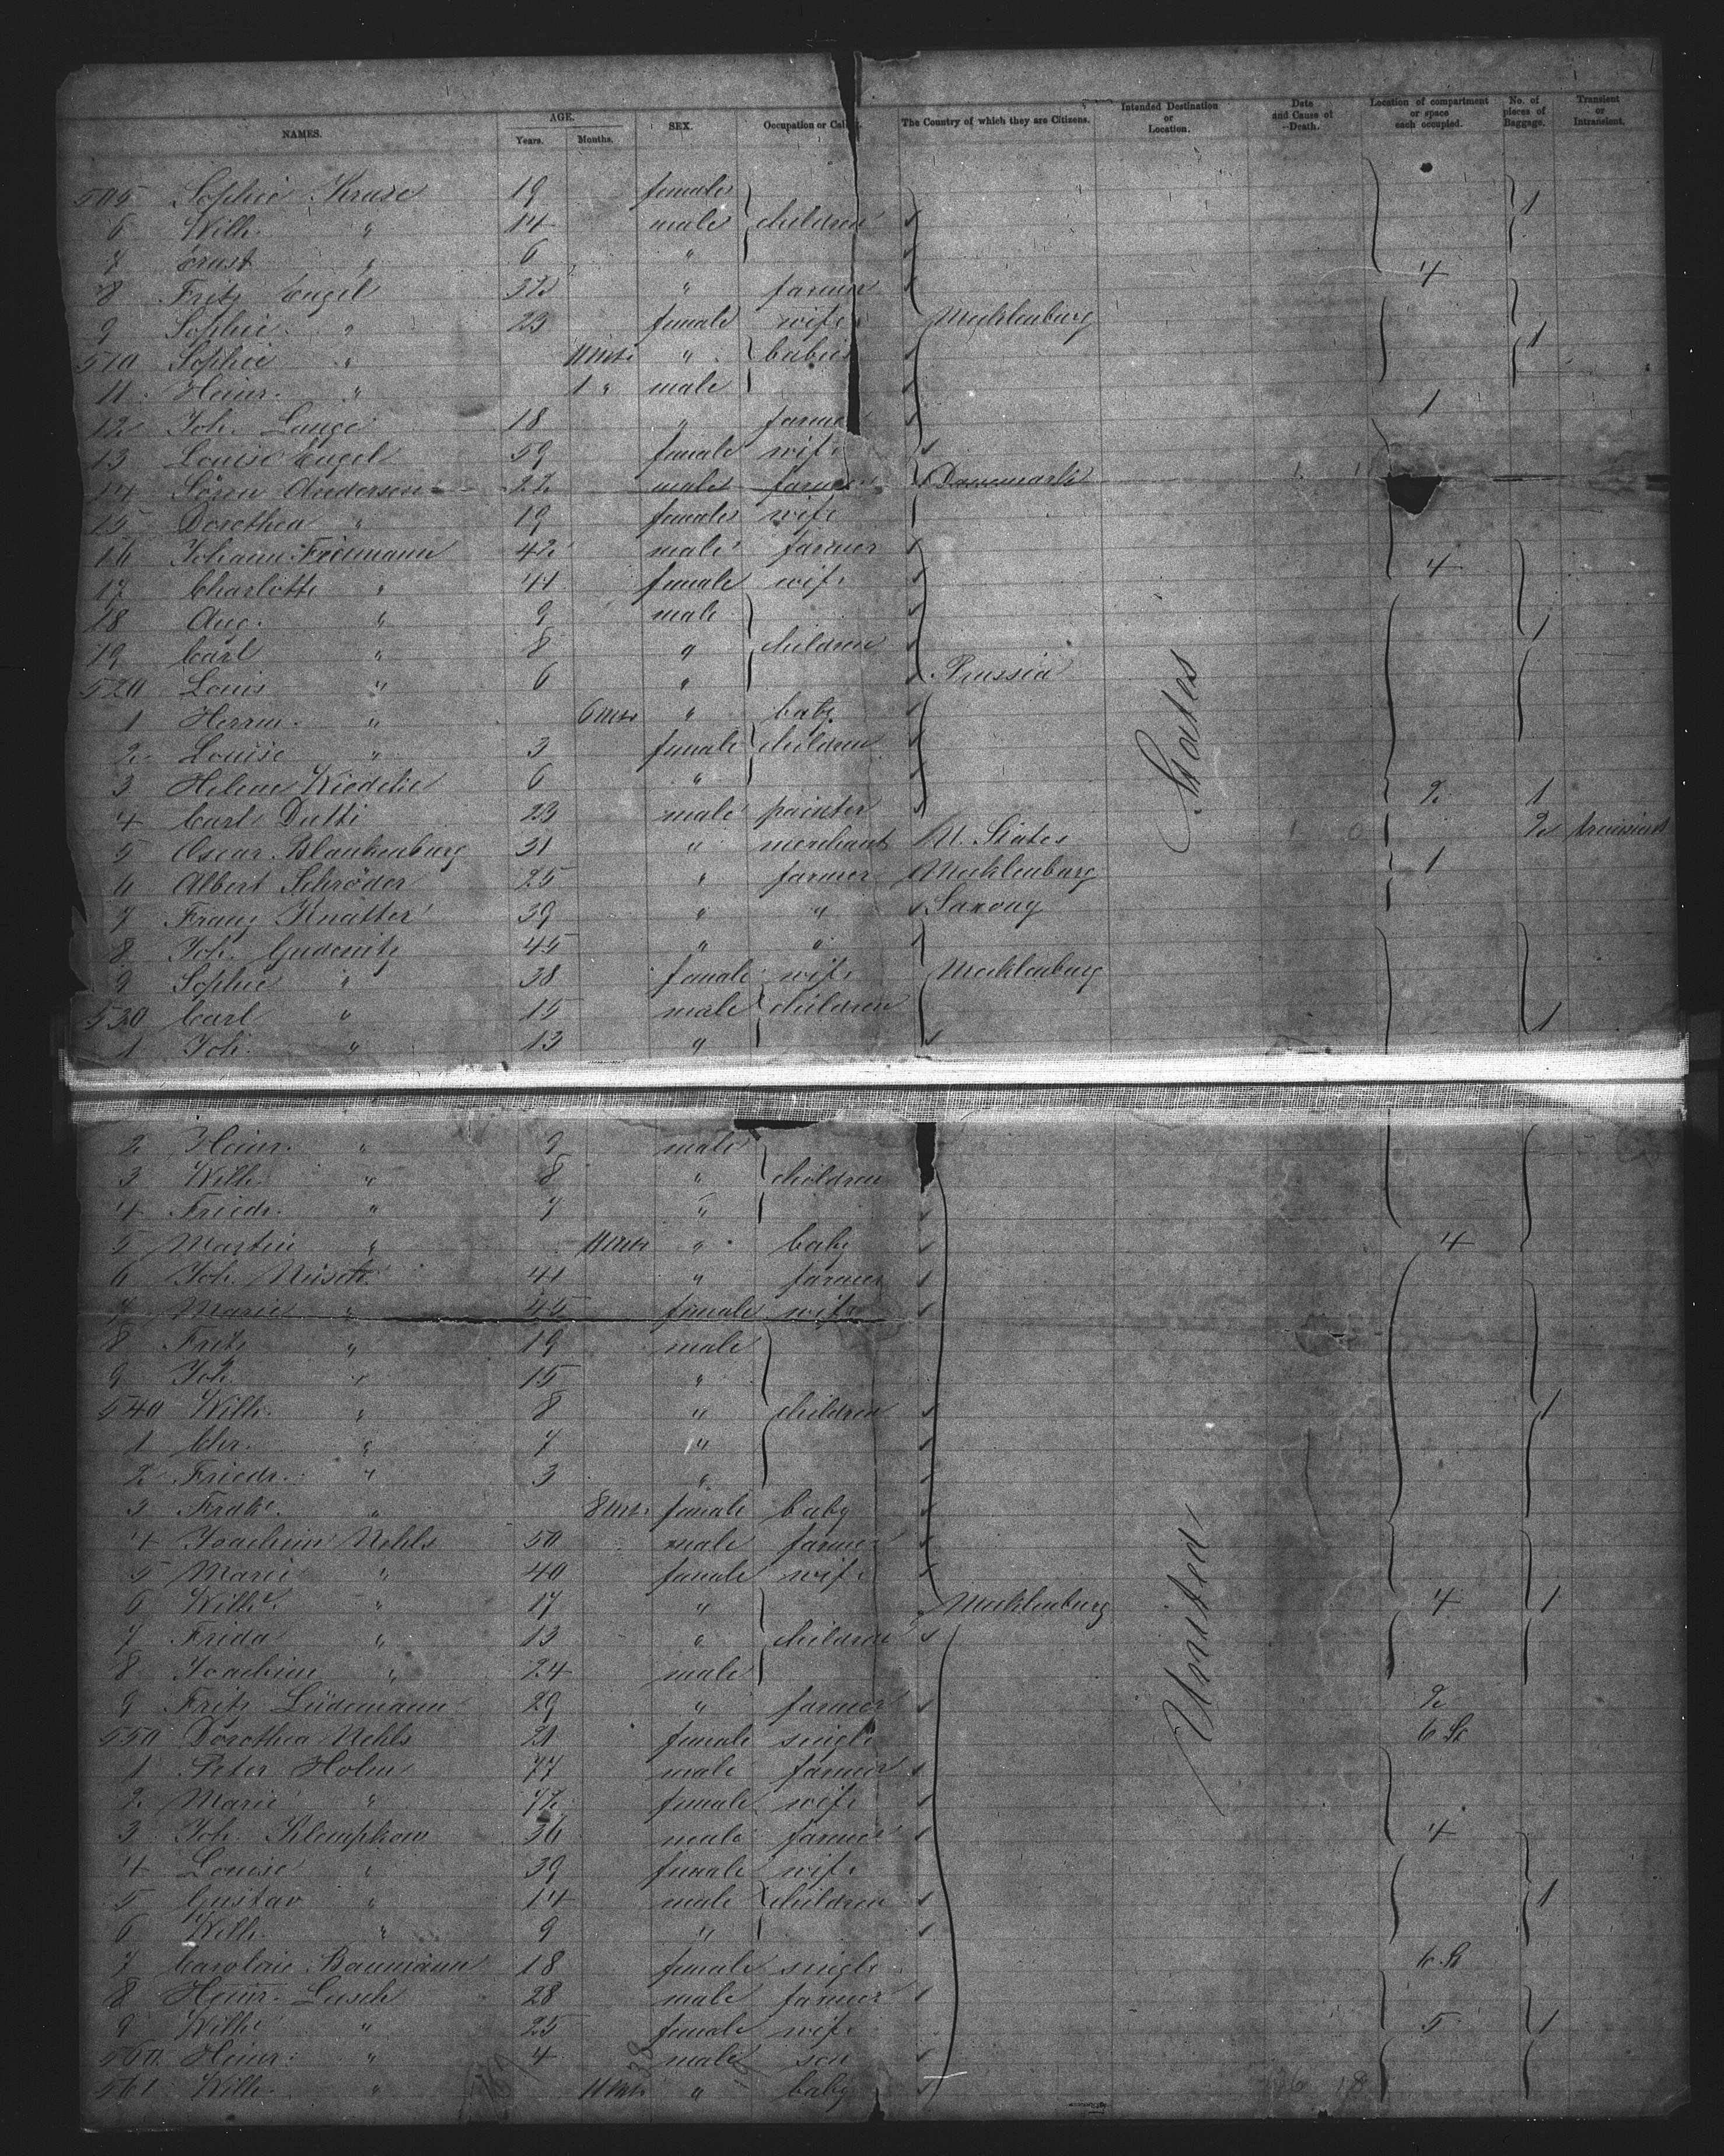 NAMES. AGE. Years. Months. SEX. Occupation or Calling. The Country of which they are Citizens. Intended Destination or Location. Date and Cause of Death. Location of compartment or space each occupied. No. of pieces of Baggage. Transient or Intransient.
505 Sophie Kruse 19 female
6 Wilh. " 14 male children 1
7 Ernst " 6 "
8 Fritz Engel 32 " farmer 4
9 Sophie " 23 female wife Mecklenburg
510 Sophie " 11 Mts. " babies 1
11 Heinr. " 1 " male
12 Joh. Lange 18 " farmer 1
13 Louise Engel 59 female wife
14 Sören Andersen 22 male farmer Dannemark
15 Dorothea " 19 female wife
16 Johann Friemann 42 male farmer 4
17 Charlotte " 41 female wife
18 Aug. " 9 male
19 Carl " 8 " children 1
520 Louis " 6 " Prussia
1 Herrm. " 6 Mts " baby
2 Louise " 3 female children
3 Helene 6 " 2 1
4 Carl 23 male painter
5 Oscar Blankenburg 31 " merchant U. States 2 transient
6 Albert Schröder 25 " farmer Mecklenburg 1
7 Franz Knatter 39 " " Saxony
8 Joh. Gudowitz 45 " "
9 Sophie " 38 female wife Mecklenburg
530 Carl " 15 male children 1
1 Joh. " 13 "
2 Heinr. " 9 male
3 Wilh. " 8 " children
4 Friedr. " 7 "
5 Martin " 11 Mts " baby 4
6 Joh. 41 " farmer
7 Marie " 45 female wife
8 Fritz " 19 male
9 Joh. " 15 "
540 Wilh. " 8 " children 1
1 Chr. " 7 "
2 Friedr. " 3 "
3 Fredke. " 8 Mts. female baby
4 Joachim Nehls 50 male farmer
5 Marie " 40 female wife
6 Wilhe. " 17 " Mecklenburg 4 1
7 Frida " 13 " children
8 Joachim " 24 male
9 Fritz Lüdemann 29 " farmer 2
550 Dorothea Nehls 21 female single 6 St
1 Peter Holm 77 male farmer
2 Marie " 72 female wife
3 Joh. Klempkow 36 male farmer 4
4 Louise " 39 female wife
5 Gustav " 14 male children 1
6 Wilh. " 9 "
7 Caroline Baumann 18 female single 6 St
8 Heinr. Lusch 28 male farmer
9 Wilhe " 25 female wife 5 1
560 Heinr. " 4 male son
561 Wilh. " 11 Mts " baby
United States